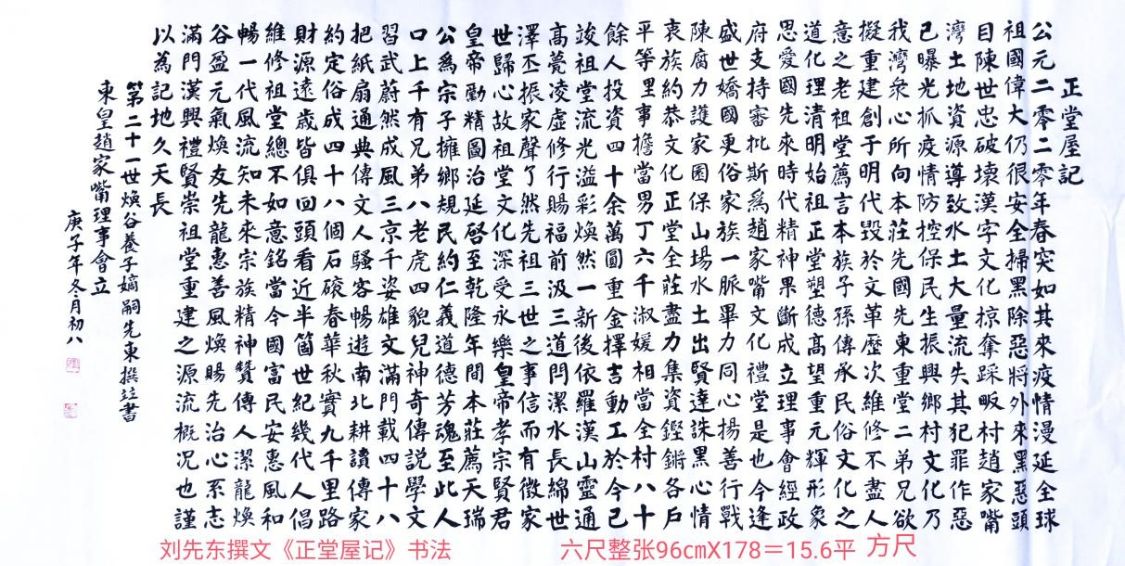 正堂屋記
公元二零二零年春突如其來疫情漫延全球
祖國偉大仍很安全掃黑除惡將外來黑惡頭
目陳世忠破壞漢字文化掠奪踩畈村趙家嘴
灣土地資源導致水土大量流失其犯罪作惡
已曝光抓疫情防控保民生振興鄉村文化乃
我灣衆心所向本莊先國先東重堂二弟兄欲
擬重建創于明代毀於文革歷次維修不盡人
意之老祖堂薦言本族子孫傳承民俗文化之
道化理清明始祖正堂塑德高望重元輝形象
思愛國先來時代精神果斷成立理事會經政
府支持審批斯爲趙家嘴文化禮堂是也今逢
盛世嬌國更俗家族一脈畢力同心揚善行戰
陳腐力護家園保山場水土出賢達誅黑心情
衷族約恭文化正堂全莊盡力集資鏗鏘各戶
平等里事擔當男丁六千淑媛相當全村八十
餘人投資四十余萬圓重金擇吉動工於今已
竣祖堂流光溢彩煥然一新後依羅漢山靈通
高甍凌虛修行賜福前汲三道門潔水長綿世
澤丕振家聲了然先祖三世之事信而有徵家
世歸心故祖堂文化深受永樂皇帝孝宗賢君
皇帝勤精圖治延啓至乾隆年間本莊薦天瑞
公爲宗子擁鄉規民約仁義道德芳魂至此人
口上千有兄弟八老虎四貌兒神奇傳説學文
習武蔚然成風三京千姿雄文滿門載四十八
把紙扇通典傳文人騷客暢遊南北耕讀傳家
約定俗成四十八個石磙春華秋實九千里路
財源遠歲皆俱回頭看近半箇世紀幾代人倡
維修祖堂總不如意銘當今國富民安惠風和
暢一代風流知未來宗族精神贊傳人潔龍煥
谷盈元氣煥友先龍惠善風煥賜先治心系志
滿門漢興禮賢崇祖堂重建之源流概况也謹
以為記地久天長
第二十一世煥谷養子嫡嗣先東撰竝書
東皇趙家嘴理事會立
庚子年冬月初八
刘先东撰文《正堂屋记》书法
六尺整张96cmX178＝15.6平 方尺